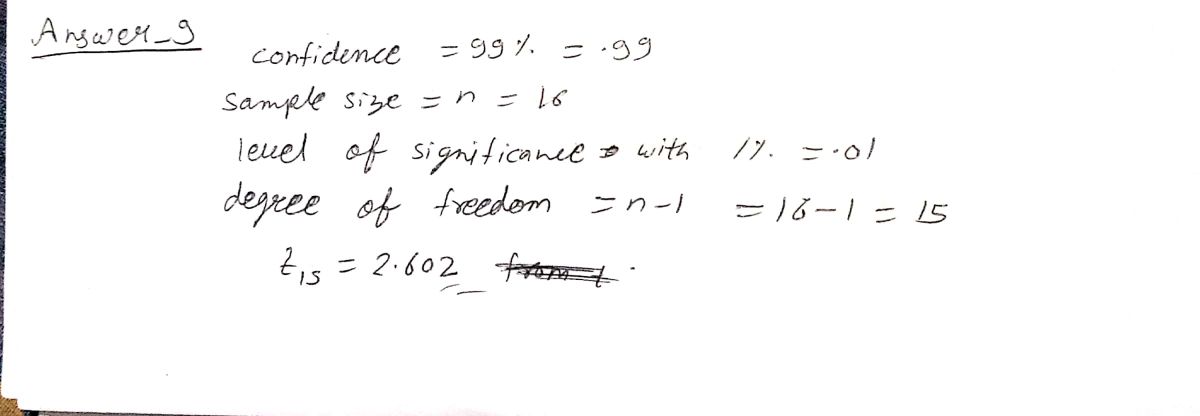 Answer_9
confidence = 99% = .99
sample size = n = 16
level of significance with 1% = .01
degree of freedom = n-1 = 16-1 = 15
t15 = 2.602 from t .